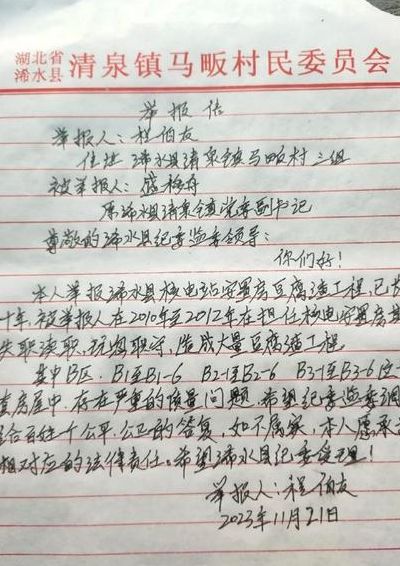 湖北省
浠水县 清泉镇马畈村民委员会
举报信
举报人：程伯友
住址 浠水县清泉镇马畈村三组
被举报人：
原浠水县清泉镇党委副书记
尊敬的浠水县纪委监委领导：
你们好！
本人举报浠水县核电站安置房豆腐渣工程，已长
十年，被举报人在2010年至2012年在担任核电安置房
失职渎职、玩忽职守，造成大量豆腐渣工程。
其中B区，B1至B1-6 B2-1至B2-6 B3-1至B3-6
房屋中，存在严重的质量问题，希望纪委监委调
给百姓一个公平、公正的答复，如不属实，本人愿承
相对应的法律责任。希望浠水县纪委受理！
举报人：程伯友
2023年11月21日